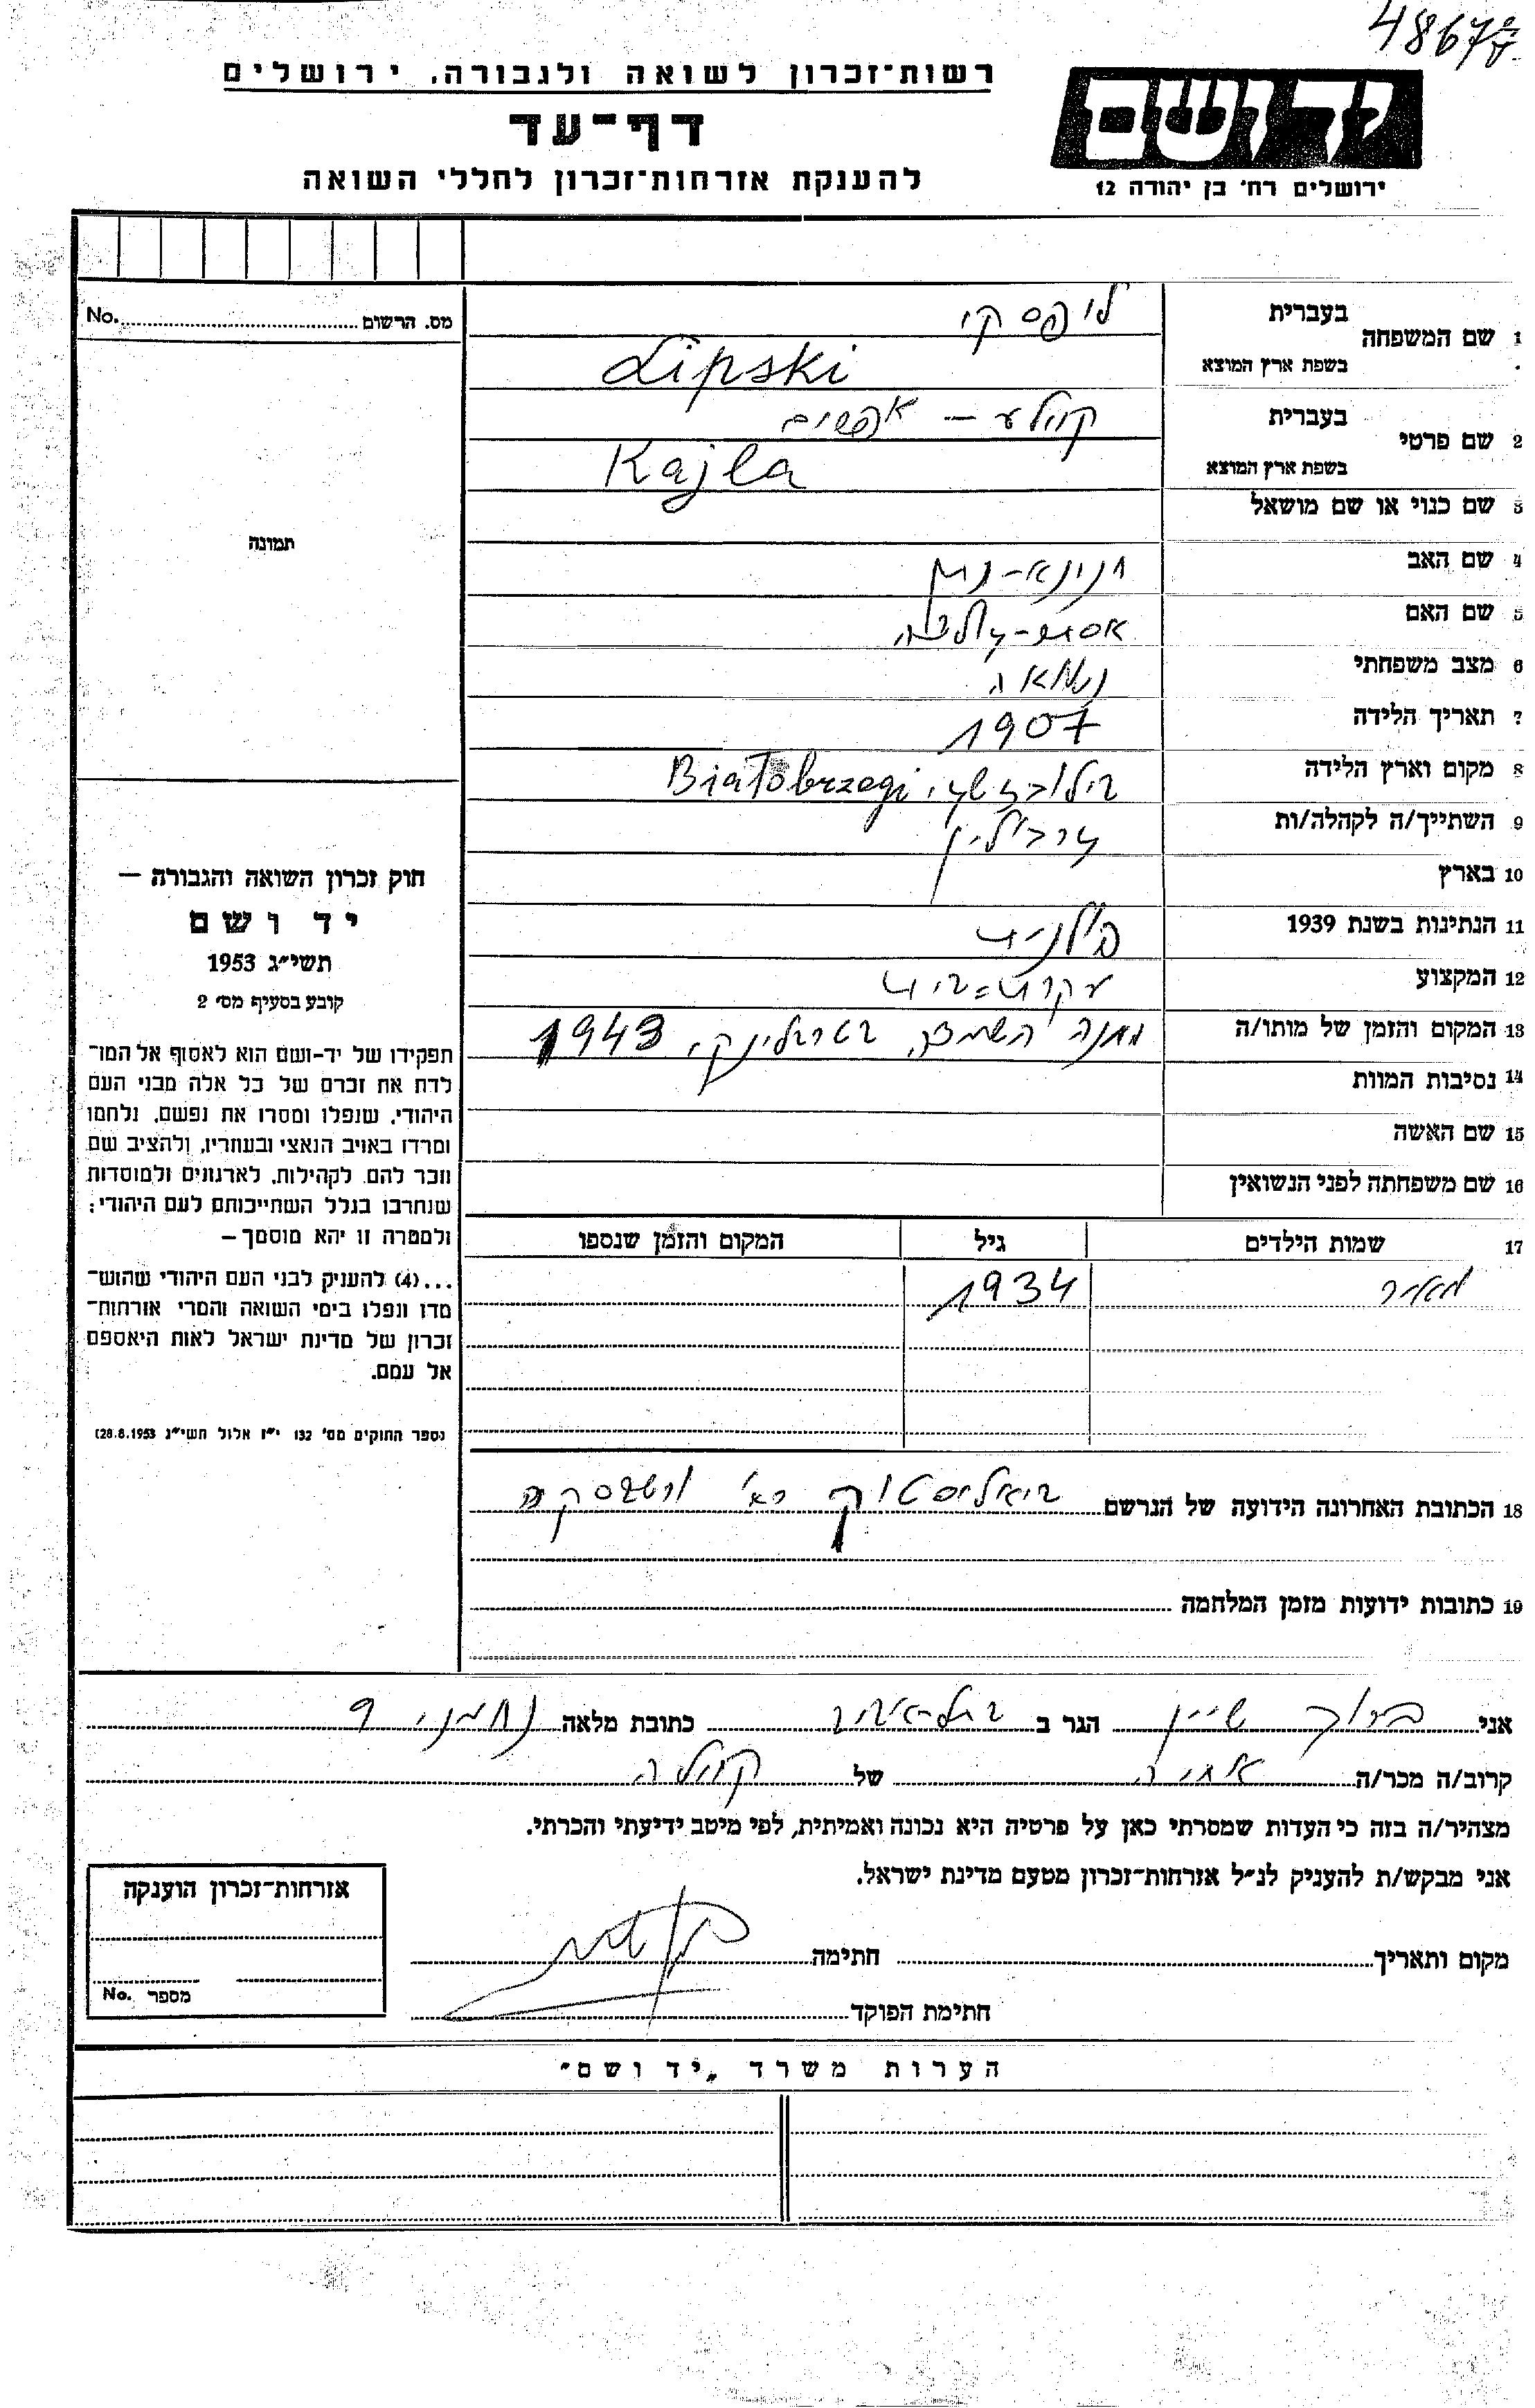 48678
רשות־זכרון לשואה ולגבורה. ירושלים
דף־עד
להענקת אזרחות־זכרון לחללי השואה
יד ושם
ירושלים רח' בן יהודה 12
מס. הרשום No.
תמונה
חוק זכרון השואה והגבורה —
יד ושם
תשי״ג 1953
קובע בסעיף מס' 2
תפקידו של יד-ושם הוא לאסוף אל המו־
לדת את זכרם של כל אלה מבני העם
היהודי. שנפלו ומסרו את נפשם. נלחמו
ומרדו באויב הנאצי ובעוזריו. ולהציב שם
וזכר להם. לקהילות. לארגונים ולמוסדות
שנחרבו בגלל השתייכותם לעם היהודי:
ולמטרה זו יהא מוסמך—
...(4) להעניק לבני העם היהודי שהוש־
מדו ונפלו בימי השואה והמרי אזרחות־
זכרון של מדינת ישראל לאות היאספם
אל עמם.
(ספר החוקים מס' 132 י״ז אלול תשי״ג 28.8.1953)
1 שם המשפחה בעברית ליפסקי
בשפת ארץ המוצא Lipski
2 שם פרטי בעברית קיילע —
בשפת ארץ המוצא Kajla
3 שם כנוי או שם מושאל
4 שם האב חנינא-
5 שם האם
6 מצב משפחתי נשואה
7 תאריך הלידה 1907
8 מקום וארץ הלידה Białobrzegi
9 השתייך/ה לקהלה/ות
10 בארץ
11 הנתינות בשנת 1939 פולנית
12 המקצוע עקרת-בית
13 המקום והזמן של מותו/ה מחנה השמדה טרבלינקי 1943
14 נסיבות המוות
15 שם האשה
16 שם משפחתה לפני הנשואין
17 שמות הילדים גיל המקום והזמן שנספו
מאיר 1934
18 הכתובת האחרונה הידועה של הנרשם ביאליסטוק רח'
19 כתובות ידועות מזמן המלחמה
אני ברוך שיין הגר ב תל-אביב כתובת מלאה נחמני 9
קרוב/ה מכר/ה אחיה של קיילה
מצהיר/ה בזה כי העדות שמסרתי כאן על פרטיה היא נכונה ואמיתית, לפי מיטב ידיעתי והכרתי.
אני מבקש/ת להעניק לנ״ל אזרחות־זכרון מטעם מדינת ישראל.
מקום ותאריך חתימה
חתימת הפוקד
אזרחות־זכרון הוענקה
מספר No.
הערות משרד „יד ושם״